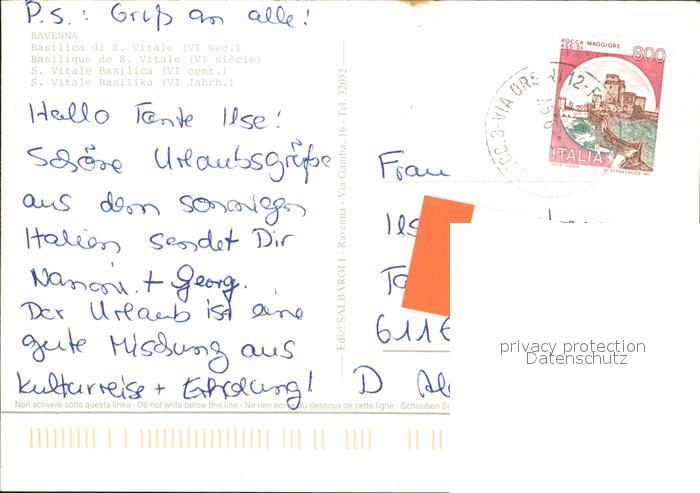 P.S.: Gruß an alle!
RAVENNA
Basilica di S. Vitale (VI sec.)
Basilique de S. Vitale (VI siècle)
S. Vitale Basilica (VI cent.)
S. Vitale Basilika (VI Jahrh.)
Hallo Tante Ilse!
Schöne Urlaubsgrüße
aus dem sonnigen
Italien sendet Dir
Nanni. + Georg.
Der Urlaub ist eine
gute Mischung aus
Kulturreise + Erholung!
Non scrivere sotto questa linea - Do not write below this line - Ne rien écrire au-dessous de cette ligne - Schreiben
Ediz. SALBAROLI - Ravenna - Via Gamba, 16 - Tel. 32032
ROCCA MAGGIORE
ASSISI
800
ITALIA
VIA ORS
12-
Frau
Ils
6116
D
privacy protection
Datenschutz